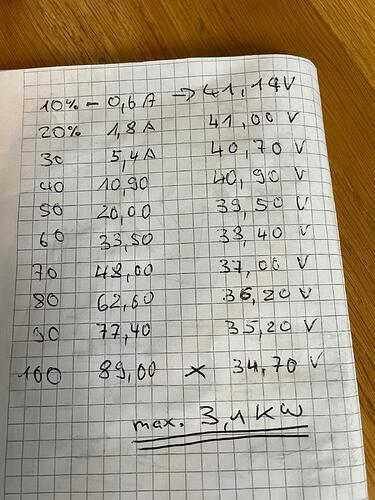 10% – 0,6 A → 41,14V
20% 1,8 A 41,00 V
30 5,4 A 40,70 V
40 10,90 40,90 V
50 20,00 39,50 V
60 33,50 38,40 V
70 48,00 37,00 V
80 62,60 36,20 V
90 77,40 35,20 V
100 89,00 × 34,70 V
max. 3,1 KW